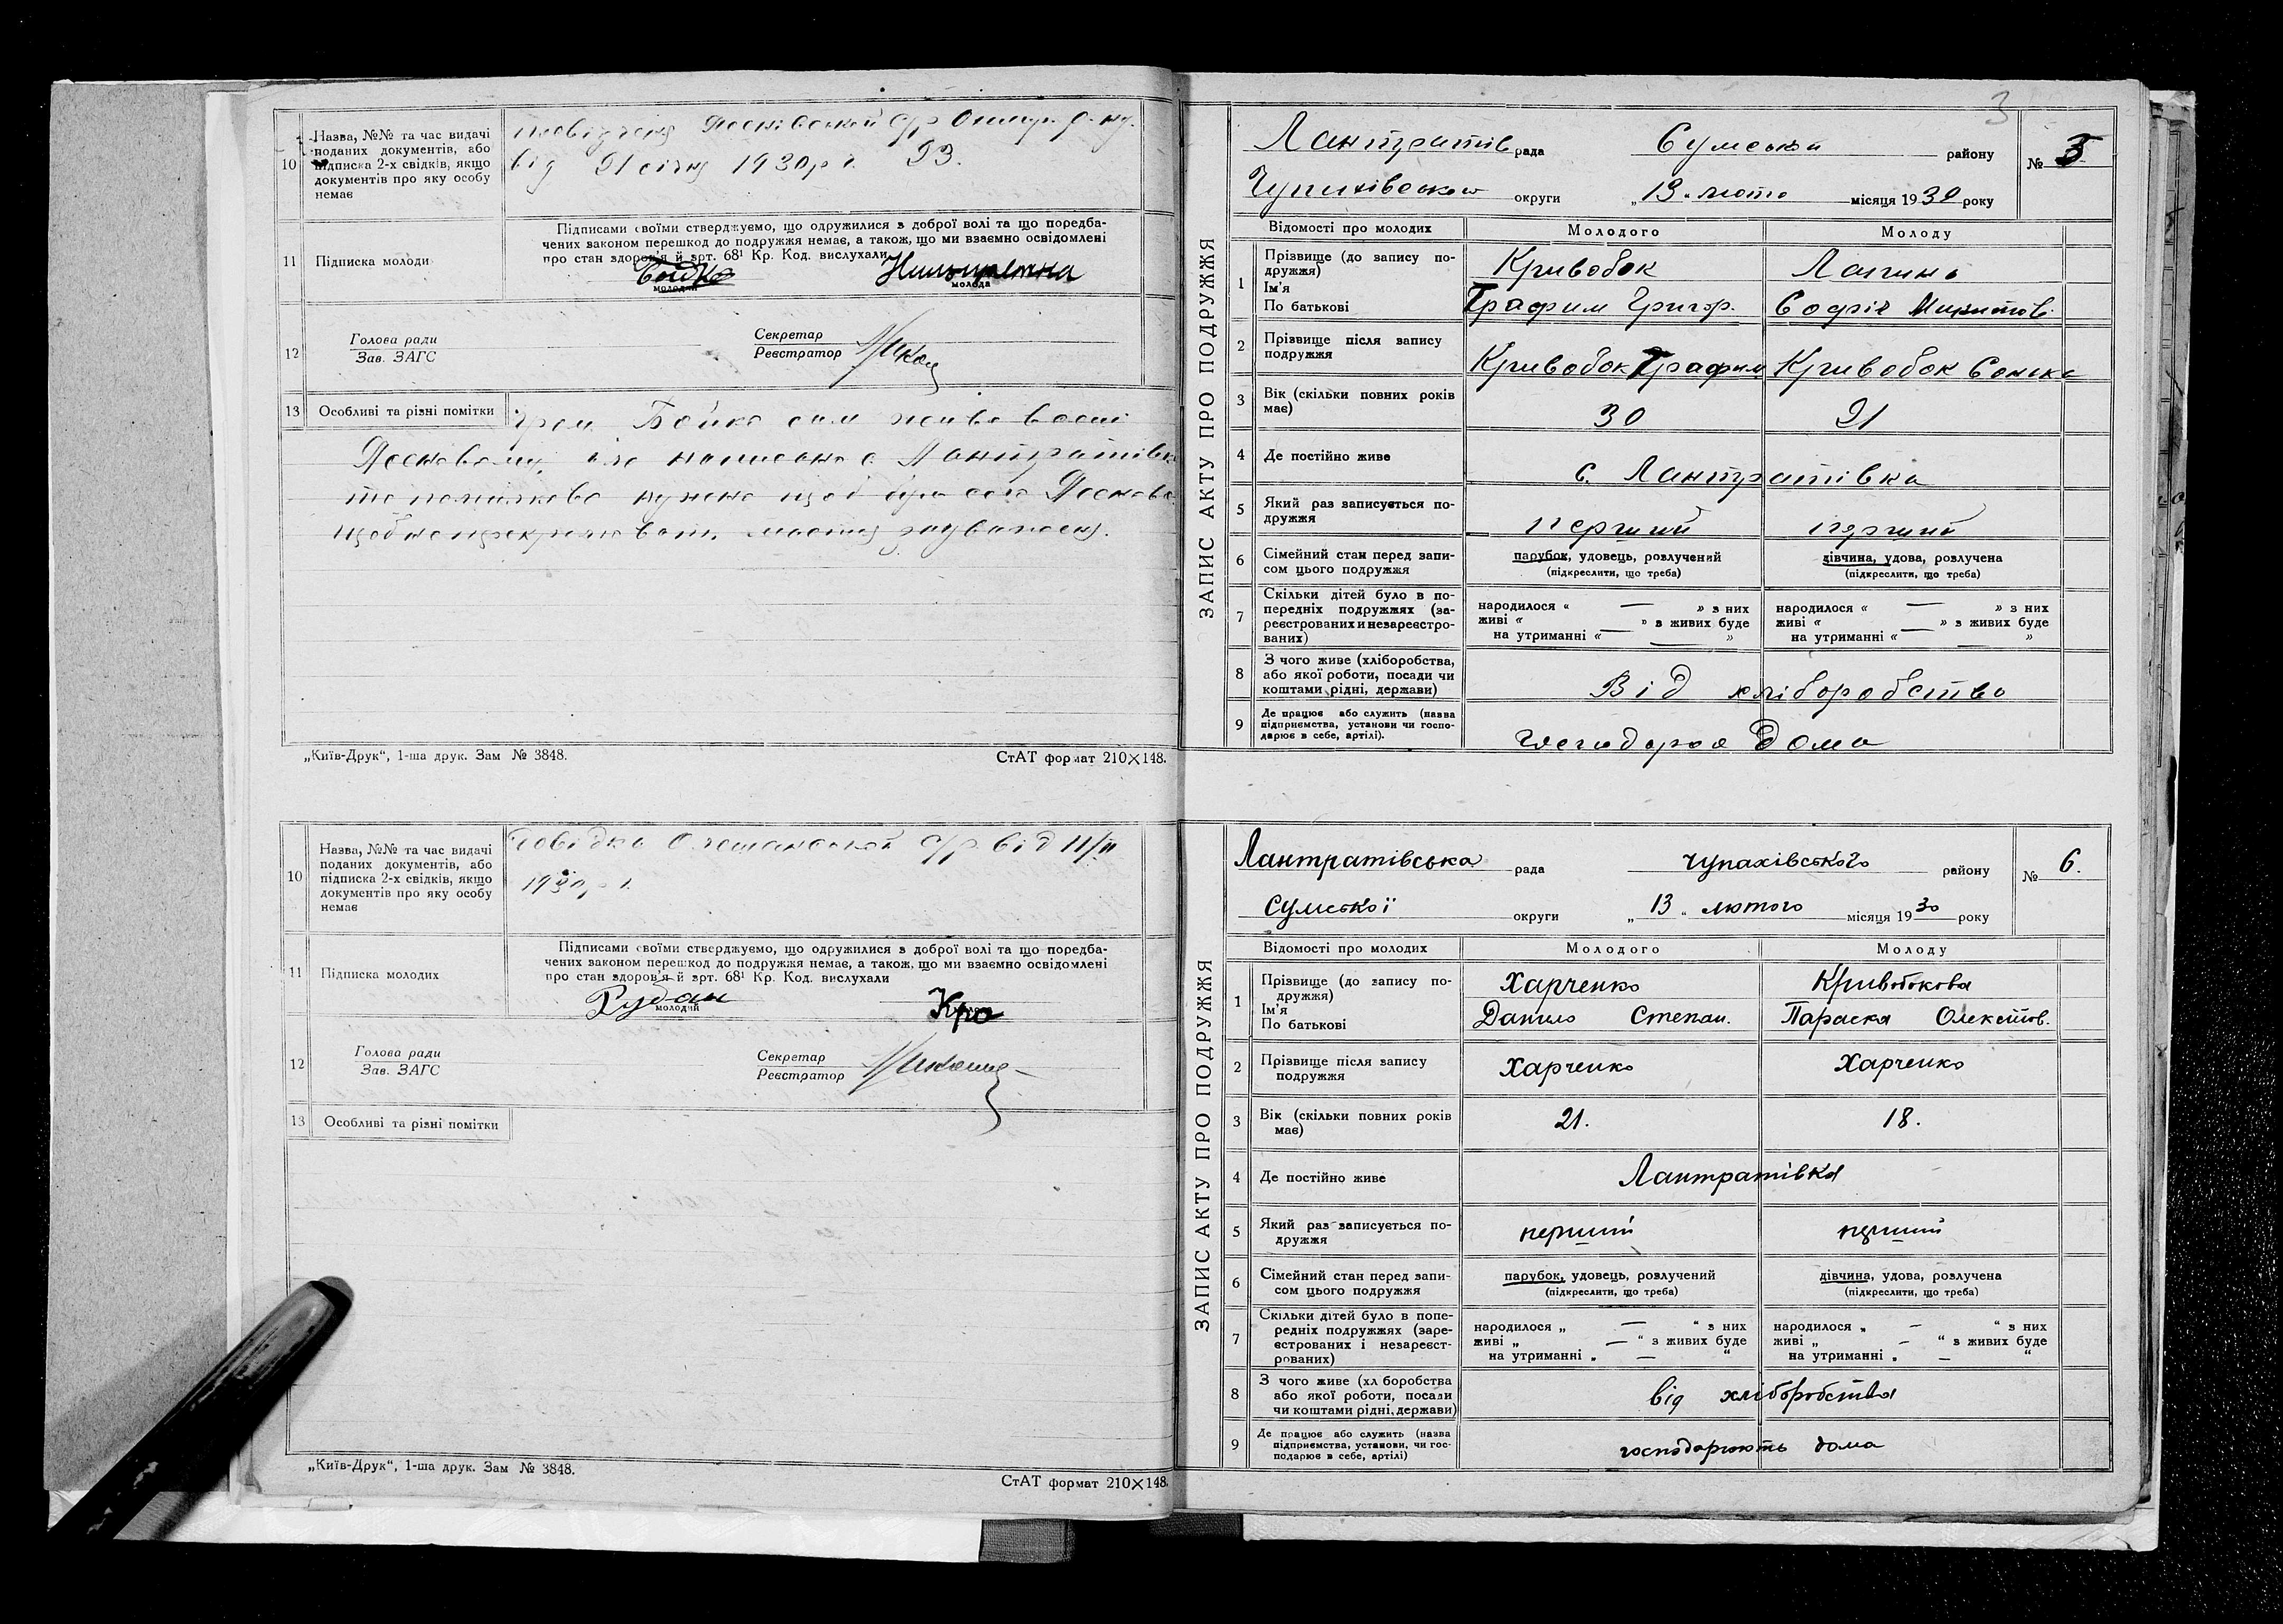 10
Назва, №№ та час видачі
поданих документів, або
підписка 2-х свідків, якщо
документів про яку особу
немає
від 21 січня 1930р 93.
11
Підписка молоди
Підписами своїми стверджуємо, що одружилися з доброї волі та що поредба-
чених законом перешкод до подружжя немає, а також, що ми взаємно освідомлені
про стан здоров'я й зрт. 68¹ Кр. Код. вислухали
Бойко
молодий
молода
12
Голова ради
Зав. ЗАГС
Секретар
Реєстратор
13
Особливі та різні помітки
Бойко сам живе в селі
„Київ-Друк“, 1-ша друк. Зам № 3848.
СтАТ формат 210×148.
10
Назва, №№ та час видачі
поданих документів, або
підписка 2-х свідків, якщо
документів про яку особу
немає
Довідка с/р від 11/II
1930р
11
Підписка молодих
Підписами своїми стверджуємо, що одружилися з доброї волі та що поредба-
чених законом перешкод до подружжя немає, а також, що ми взаємно освідомлені
про стан здоров'я й зрт. 68¹ Кр. Код. вислухали
Рубан
молодий
Кро
12
Голова ради
Зав. ЗАГС
Секретар
Реєстратор
13
Особливі та різні помітки
„Київ-Друк“, 1-ша друк. Зам № 3848.
СтАТ формат 210×148.
3
ЗАПИС АКТУ ПРО ПОДРУЖЖЯ
Лантратів рада Сумська району
№ 5
Чупахівською округи „13„ люто місяця 1930 року
Відомості про молодих
Молодого
Молоду
1
Прізвище (до запису по-
дружжя)
Ім'я
По батькові
Кривобок
Трафим Григор.
Софія Микитов.
2
Прізвище після запису
подружжя
Кривобок Трафим
Кривобок Сонька
3
Вік (скільки повних років
має)
30
21
4
Де постійно живе
с. Лантратівка
5
Який раз записується по-
дружжя
перший
перший
6
Сімейний стан перед запи-
сом цього подружжя
парубок, удовець, розлучений
(підкреслити, що треба)
дівчина, удова, розлучена
(підкреслити, що треба)
7
Скільки дітей було в по-
передніх подружжях (за-
реєстрованих и незареєстро-
ваних)
народилося « — » з них
живі « — » з живих буде
на утриманні « — »
народилося « — » з них
живі « — » з живих буде
на утриманні « — »
8
З чого живе (хліборобства,
або якої роботи, посади чи
коштами рідні, держави)
Від хліборобство
9
Де працює або служить (назва
підприємства, установи чи госпо-
дарює в себе, артілі).
дома
ЗАПИС АКТУ ПРО ПОДРУЖЖЯ
Лантратівська рада Чупахівського району
№ 6.
Сумської округи „13„ лютого місяця 1930 року
Відомості про молодих
Молодого
Молоду
1
Прізвище (до запису по-
дружжя)
Ім'я
По батькові
Харченко
Данило Степан.
Кривобокова
Параска Олексіїв.
2
Прізвище після запису
подружжя
Харченко
Харченко
3
Вік (скільки повних років
має)
21.
18.
4
Де постійно живе
Лантратівка
5
Який раз записується по-
дружжя
перший
перший
6
Сімейний стан перед запи-
сом цього подружжя
парубок, удовець, розлучений
(підкреслити, що треба)
дівчина, удова, розлучена
(підкреслити, що треба)
7
Скільки дітей було в попе-
редніх подружжях (заре-
єстрованих і незареєст-
рованих)
народилося „ — “ з них
живі „ — “ з живих буде
на утриманні „ — “
народилося „ — “ з них
живі „ — “ з живих буде
на утриманні „ — “
8
З чого живе (хл боробства
або якої роботи, посади
чи коштами рідні, держави)
від хліборобства
9
Де працює або служить (назва
підприємства, установи, чи гос-
подарює в себе, артілі)
господарюють дома